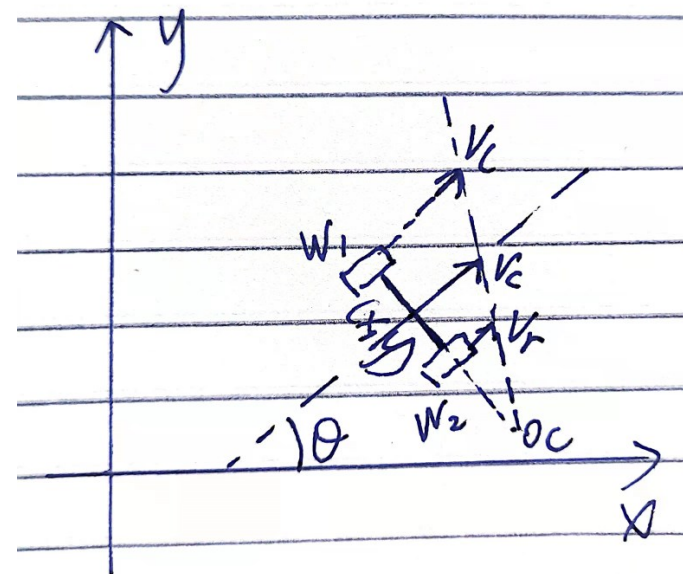 y
Vl
W1
Vc
Vr
W2
θ
OC
X